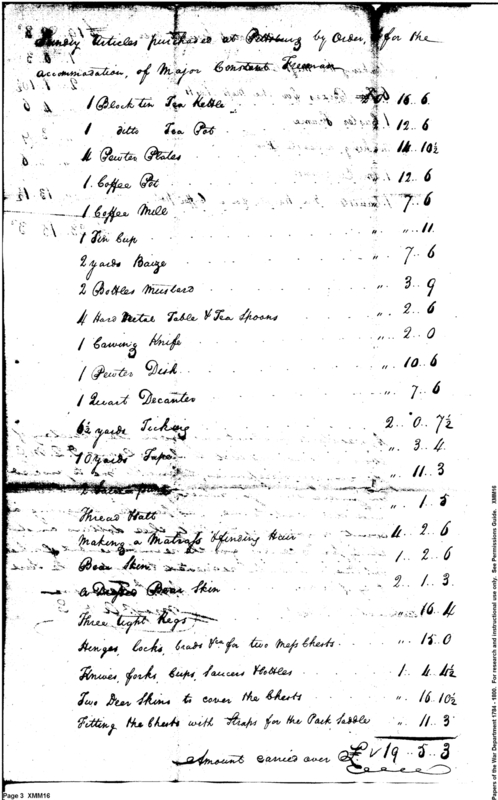 Sundry Articles purchased at Pittsburg by Order, for the
accommodation, of Major Constant Freeman
1 Block tin Tea Kettle £0 16 6
1 ditto Tea Pot " 12 6
4 Pewter Plates 14 10½
1 Coffee Pot 12 6
1 Coffee Mill 7 6
1 Tin Cup " " 11
2 yards Baize " 7 6
2 Bottles Mustard " 3 9
4 Hard Metal Table & Tea Spoons " 2 6
1 Carving Knife " 2 0
1 Pewter Dish " 10 6
1 Quart Decanter " 7 6
6½ yards Ticking 2 0 7½
10 yards Tape " 3 4
2 " 11 3
Thread " 1 5
Making a Matrass & finding Hair 4 2 6
Bear Skin 1 2 6
a Bear Skin 2 1 3
Three Kegs " 16 4
Hinges, locks, brads &ca for two Mess Chests " 15 0
Knives, forks, Cups, Saucers & bottles 1 4 4½
Two Dear Skins to cover the Chests " 16 10½
Fitting the Chests with Straps for the Pack Saddle " 11 3
Amount carried over £ 19 5 3
Page 3 XMM16
Papers of the War Department 1784 - 1800. For research and instructional use only. See Permissions Guide. XMM16